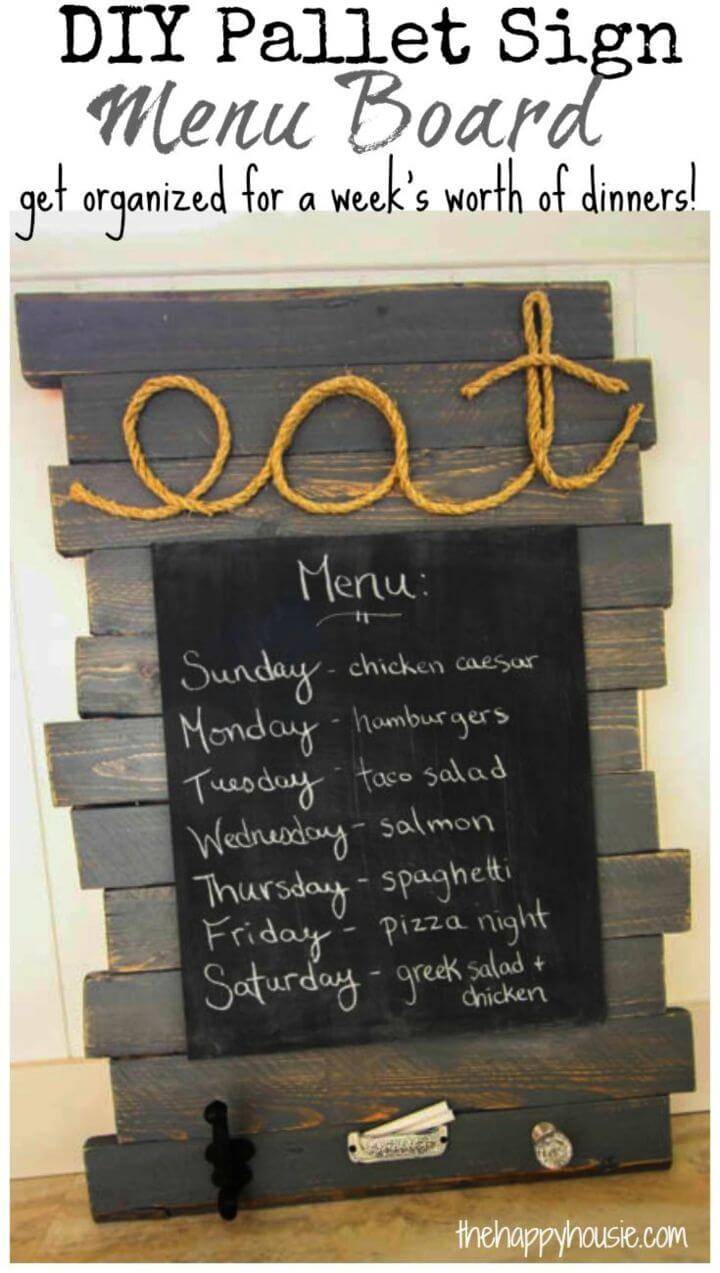 DIY Pallet Sign
Menu Board
get organized for a week's worth of dinners!
eat
Menu:
Sunday - chicken caesar
Monday - hamburgers
Tuesday - taco salad
Wednesday - salmon
Thursday - spaghetti
Friday - pizza night
Saturday - greek salad +
chicken
thehappyhousie.com